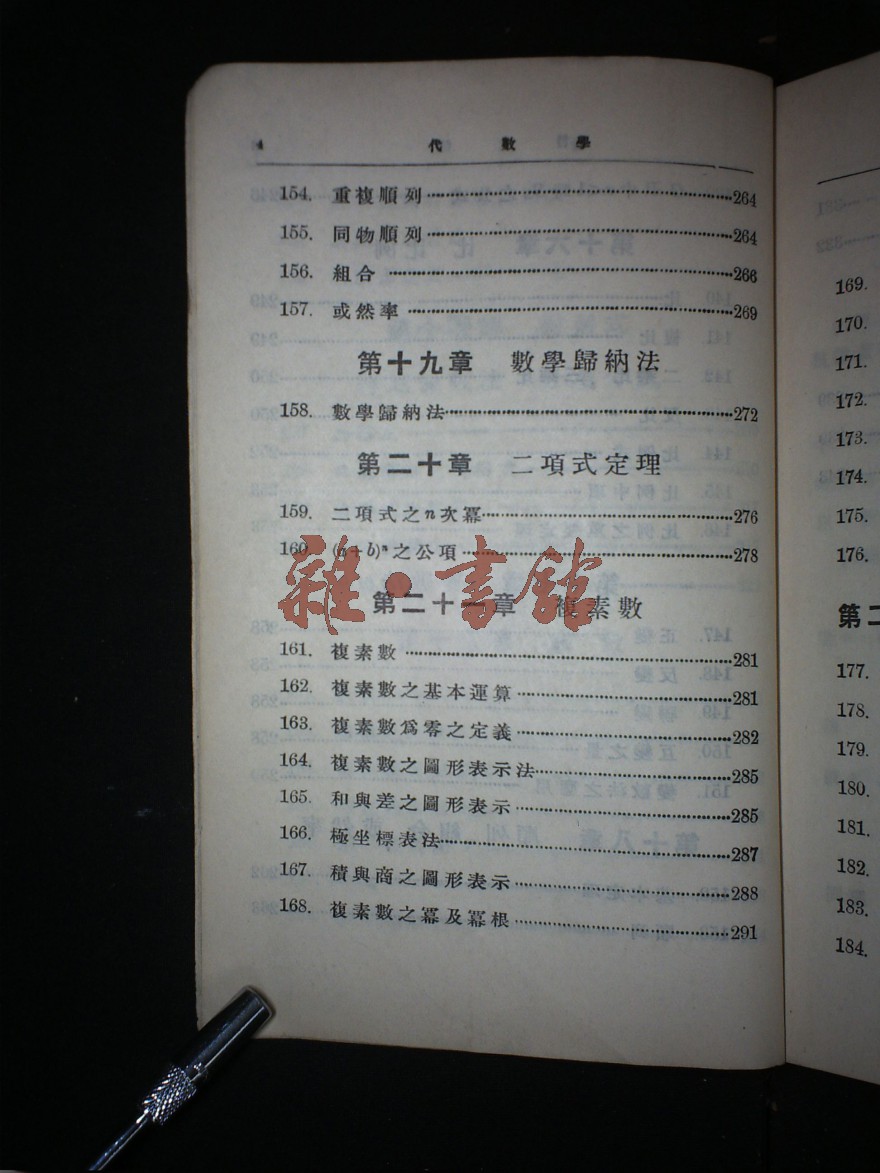 4 代數學
154. 重複順列 264
155. 同物順列 264
156. 組合 266
157. 或然率 269
第十九章 數學歸納法
158. 數學歸納法 272
第二十章 二項式定理
159. 二項式之n次冪 276
160. (a+b)ⁿ之公項 278
雜·書館
第二十一章 複素數
161. 複素數 281
162. 複素數之基本運算 281
163. 複素數爲零之定義 282
164. 複素數之圖形表示法 285
165. 和與差之圖形表示 285
166. 極坐標表法 287
167. 積與商之圖形表示 288
168. 複素數之冪及冪根 291
169.
170.
171.
172.
173.
174.
175.
176.
第二
177.
178.
179.
180.
181.
182.
183.
184.